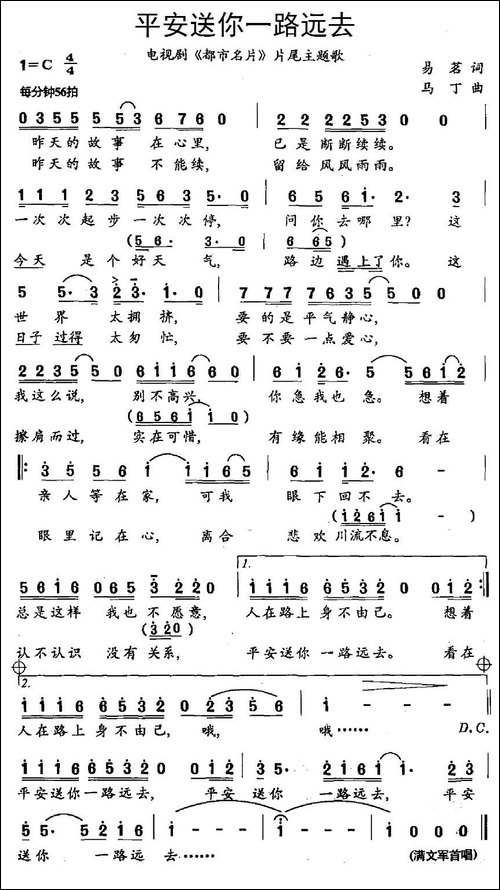 平安送你一路远去
电视剧《都市名片》片尾主题歌
1=C 4/4
易茗 词
每分钟56拍
马丁 曲
0 3 5 5 5 5 5 3 6 7 6 0 | 2 2 2 2 3 2 2 0 0 |
昨天的故事 在心里， 已是断断续续。
昨天的故事 不能续， 留给风风雨雨。
1 1 1 2 3 5 6 3 5· 0 | 6 5 6 1· 2· 3 |
一次次起步一次次停， 问你去哪里？这
(5 6· 3· 0) (6 6 5)
今天 是个好天 气， 路边遇上了你。这
5 5· 3 2 3· 1· 0 | 7 7 7 7 6 3 5 5 0 0 |
世界 太拥挤， 要的是平气静心，
日子过得 太匆忙， 要不要一点爱心，
2 2 3 5 5 0 6 1 1 6 6 0 |
我这么说， 别不高兴， 你急我也急。想着
(6 5 6 1 1 0)
擦肩而过， 实在可惜， 有缘能相聚。看在
亲人等在家， 可我 眼下回不去。
(1 2 6 1 1 -)
眼里记在心， 离合 悲欢川流不息。
1.
5 6 1 6 0 6 5 3 2 2 0 | 1 1 1 6 6 5 3 2 0 0 1 2 :||
总是这样 我也不愿意， 人在路上身不由己。 想着
(3 2 0)
认不认识 没有关系， 平安送你一路远去。 看在
2.
1 1 1 6 6 5 3 2 0 0 2 3 5 | 1 - - - |
人在路上身不由己，哦， 哦…… D.C.
1 1 1 6 6 5 3 2 0 0 1 2 | 3 5· 2 2 1 6 1 1· 1 2 |
平安送你一路远去， 平安 送你 一路远去， 平安
5 5· 5 2 1 6 1 | 1 - - - | 1 - - - | 1 0 0 0 ||
送你 一路远去…… (满文军首唱)